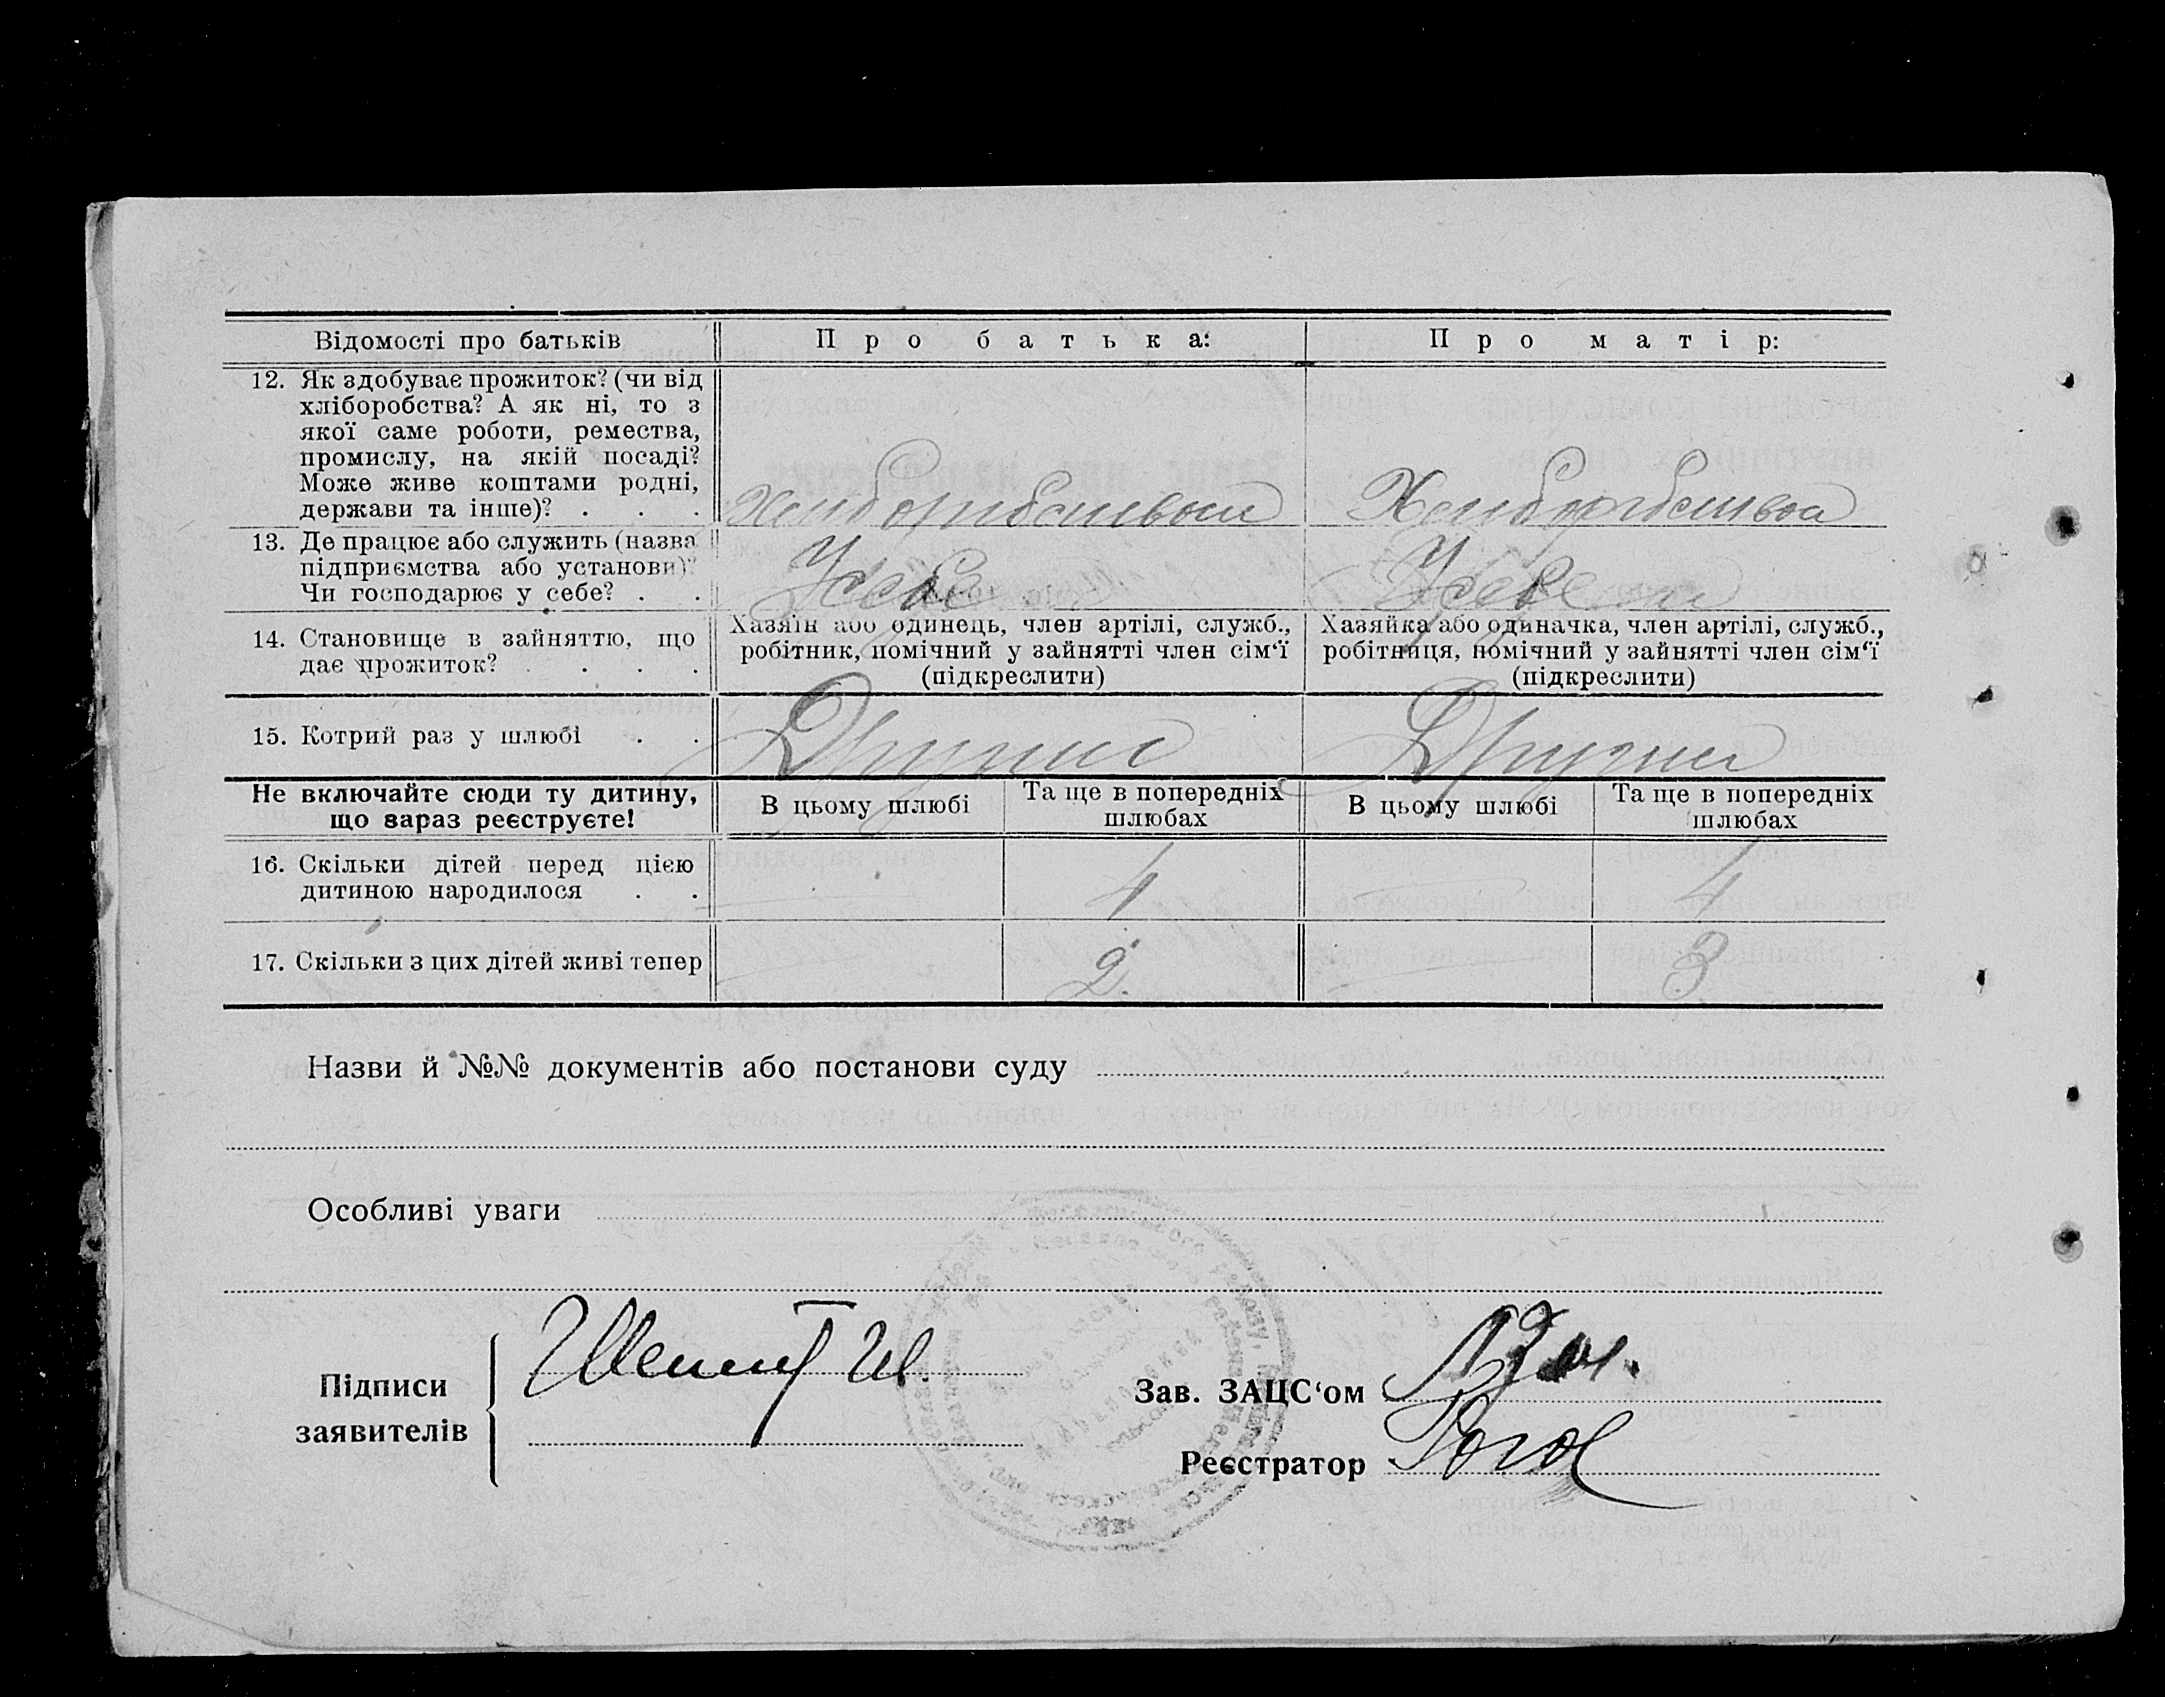 Відомості про батьків
Про батька:
Про матір:
12. Як здобуває прожиток? (чи від
хліборобства? А як ні, то з
якої саме роботи, ремества,
промислу, на якій посаді?
Може живе коштами родні,
держави та інше)? . . .
13. Де працює або служить (назва
підприємства або установи)?
Чи господарює у себе? . .
У себе
У себе
14. Становище в зайняттю, що
дає прожиток? . . . .
Хазяїн або одинець, член артілі, служб.,
робітник, помічний у зайнятті член сім'ї
(підкреслити)
Хазяйка або одиначка, член артілі, служб.,
робітниця, помічний у зайнятті член сім'ї
(підкреслити)
15. Котрий раз у шлюбі . .
Другий
Другий
Не включайте сюди ту дитину,
що зараз реєструєте!
В цьому шлюбі
Та ще в попередніх
шлюбах
В цьому шлюбі
Та ще в попередніх
шлюбах
16. Скільки дітей перед цією
дитиною народилося . .
4
4
17. Скільки з цих дітей живі тепер
2.
3
Назви й №№ документів або постанови суду
Особливі уваги
Підписи
заявителів
Зав. ЗАЦС'ом
Реєстратор